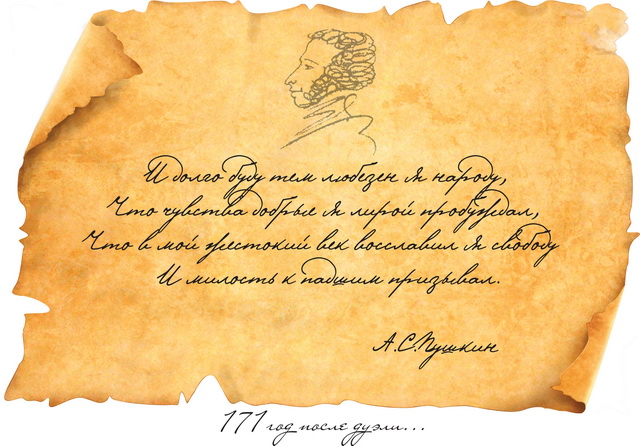 И долго буду тем любезен я народу,
Что чувства добрые я лирой пробуждал,
Что в мой жестокий век восславил я свободу
И милость к падшим призывал.
А.С.Пушкин
171 год после дуэли...